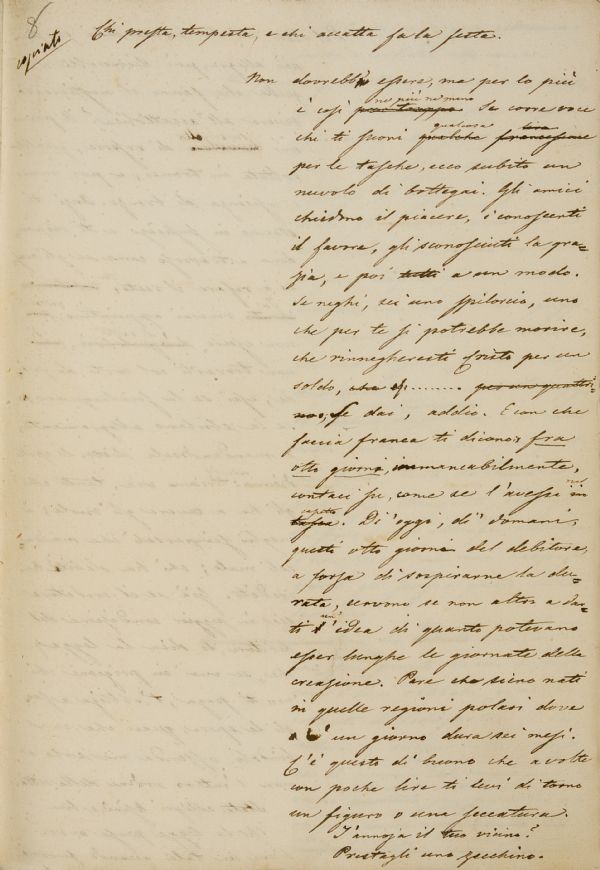 8
copiato
Chi presta, tempesta, e chi accatta fa la festa.
Non dovrebb'essere, ma per lo più
è così pur troppo ne più ne meno Se corre voce
che ti suoni qualche francescone qualcosa lira
per le tasche, ecco subito un
nuvolo di bottegai. Gli amici
chiedono il piacere, i conoscenti
il favore, gli sconosciuti la gra=
zia, e poi tutti a un modo.
Se neghi, sei uno spilorcio, uno
che per te si potrebbe morire,
che rinnegheresti Cristo per un
soldo, che ........ per un quattri=
no, Se dai, addio. E con che
faccia franca ti dicono: fra
otto giorni, immancabilmente,
contaci su, come se l'avessi in nel
tasca. Di oggi, di domani,
questi otto giorni del debitore,
a forza di sospirarne la du=
rata, servono se non altro a dar=
ti l'idea di quanto potevano
esser lunghe le giornate della
creazione. Pare che sieno nati
in quelle regioni polari dove
un giorno dura sei mesi.
C'è questo di buono che a volte
con poche lire ti levi di torno
un figuro o una seccatura.
T'annoja il tuo vicino?
Prestagli uno zecchino.